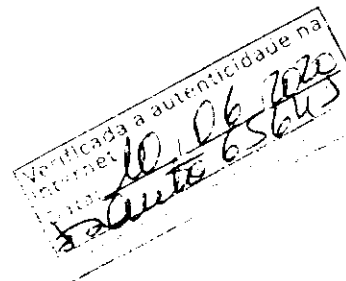 Verificada a autenticidade na
Internet
10, 06, 2020
65645